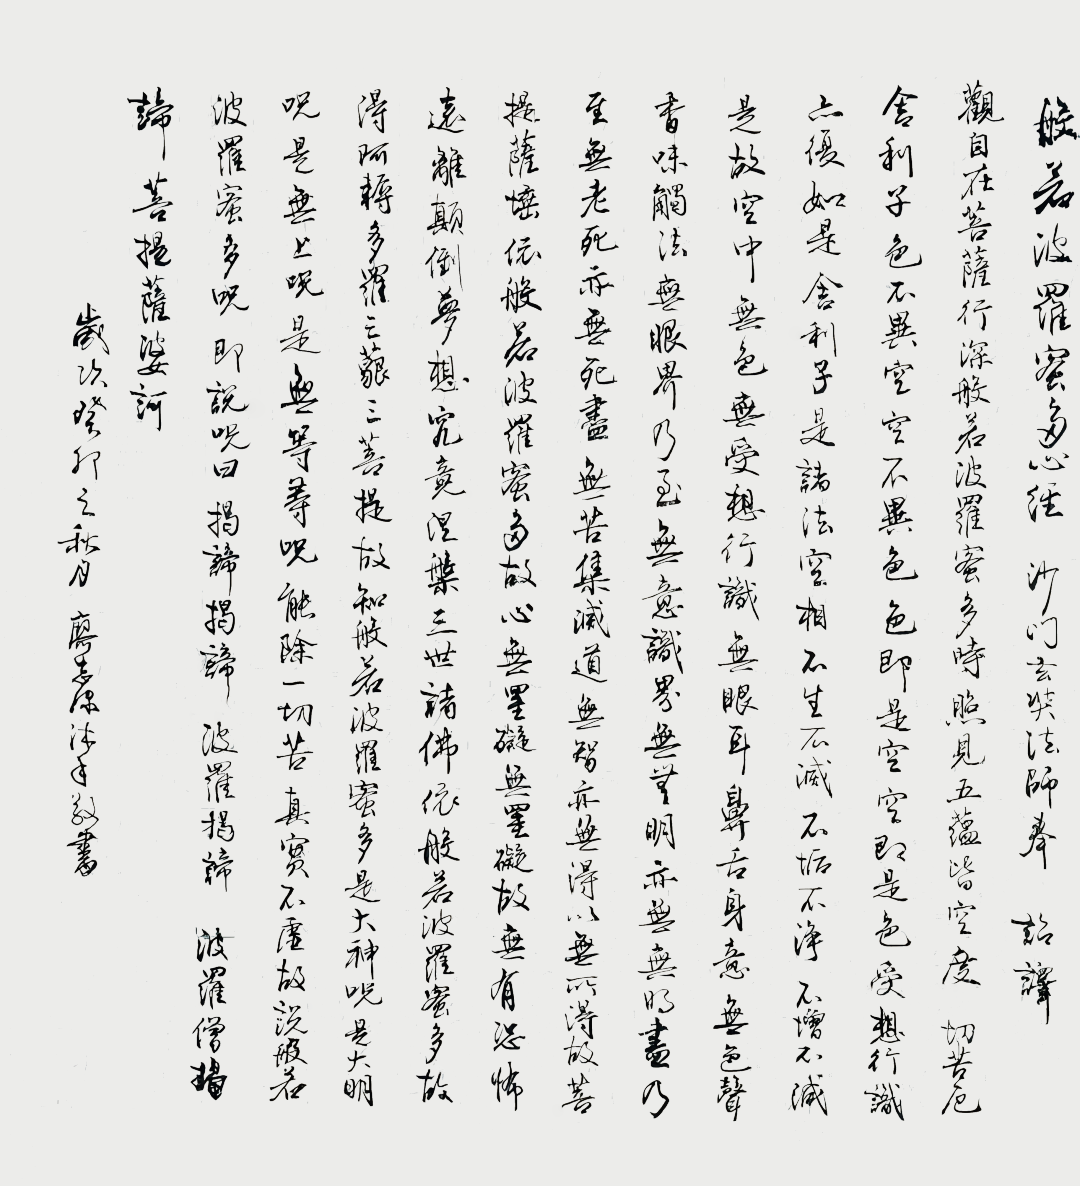 般若波羅蜜多心經 沙門玄奘法師奉 詔譯
觀自在菩薩行深般若波羅蜜多時照見五蘊皆空度 切苦厄
舍利子色不異空空不異色色即是空空即是色受想行識
亦復如是舍利子是諸法空相不生不滅不垢不淨不增不減
是故空中無色無受想行識無眼耳鼻舌身意無色聲
香味觸法無眼界乃至無意識界無無明亦無無明盡乃
至無老死亦無死盡無苦集滅道無智亦無得以無所得故菩
提薩埵依般若波羅蜜多故心無罣礙無罣礙故無有恐怖
遠離顛倒夢想究竟涅槃三世諸佛依般若波羅蜜多故
得阿耨多羅三藐三菩提故知般若波羅蜜多是大神咒是大明
咒是無上咒是無等等咒能除一切苦真實不虛故說般若
波羅蜜多咒即說咒曰揭諦揭諦 波羅揭諦 波羅僧揭
諦 菩提薩婆訶
歲次癸卯之秋月 廖志 敬書